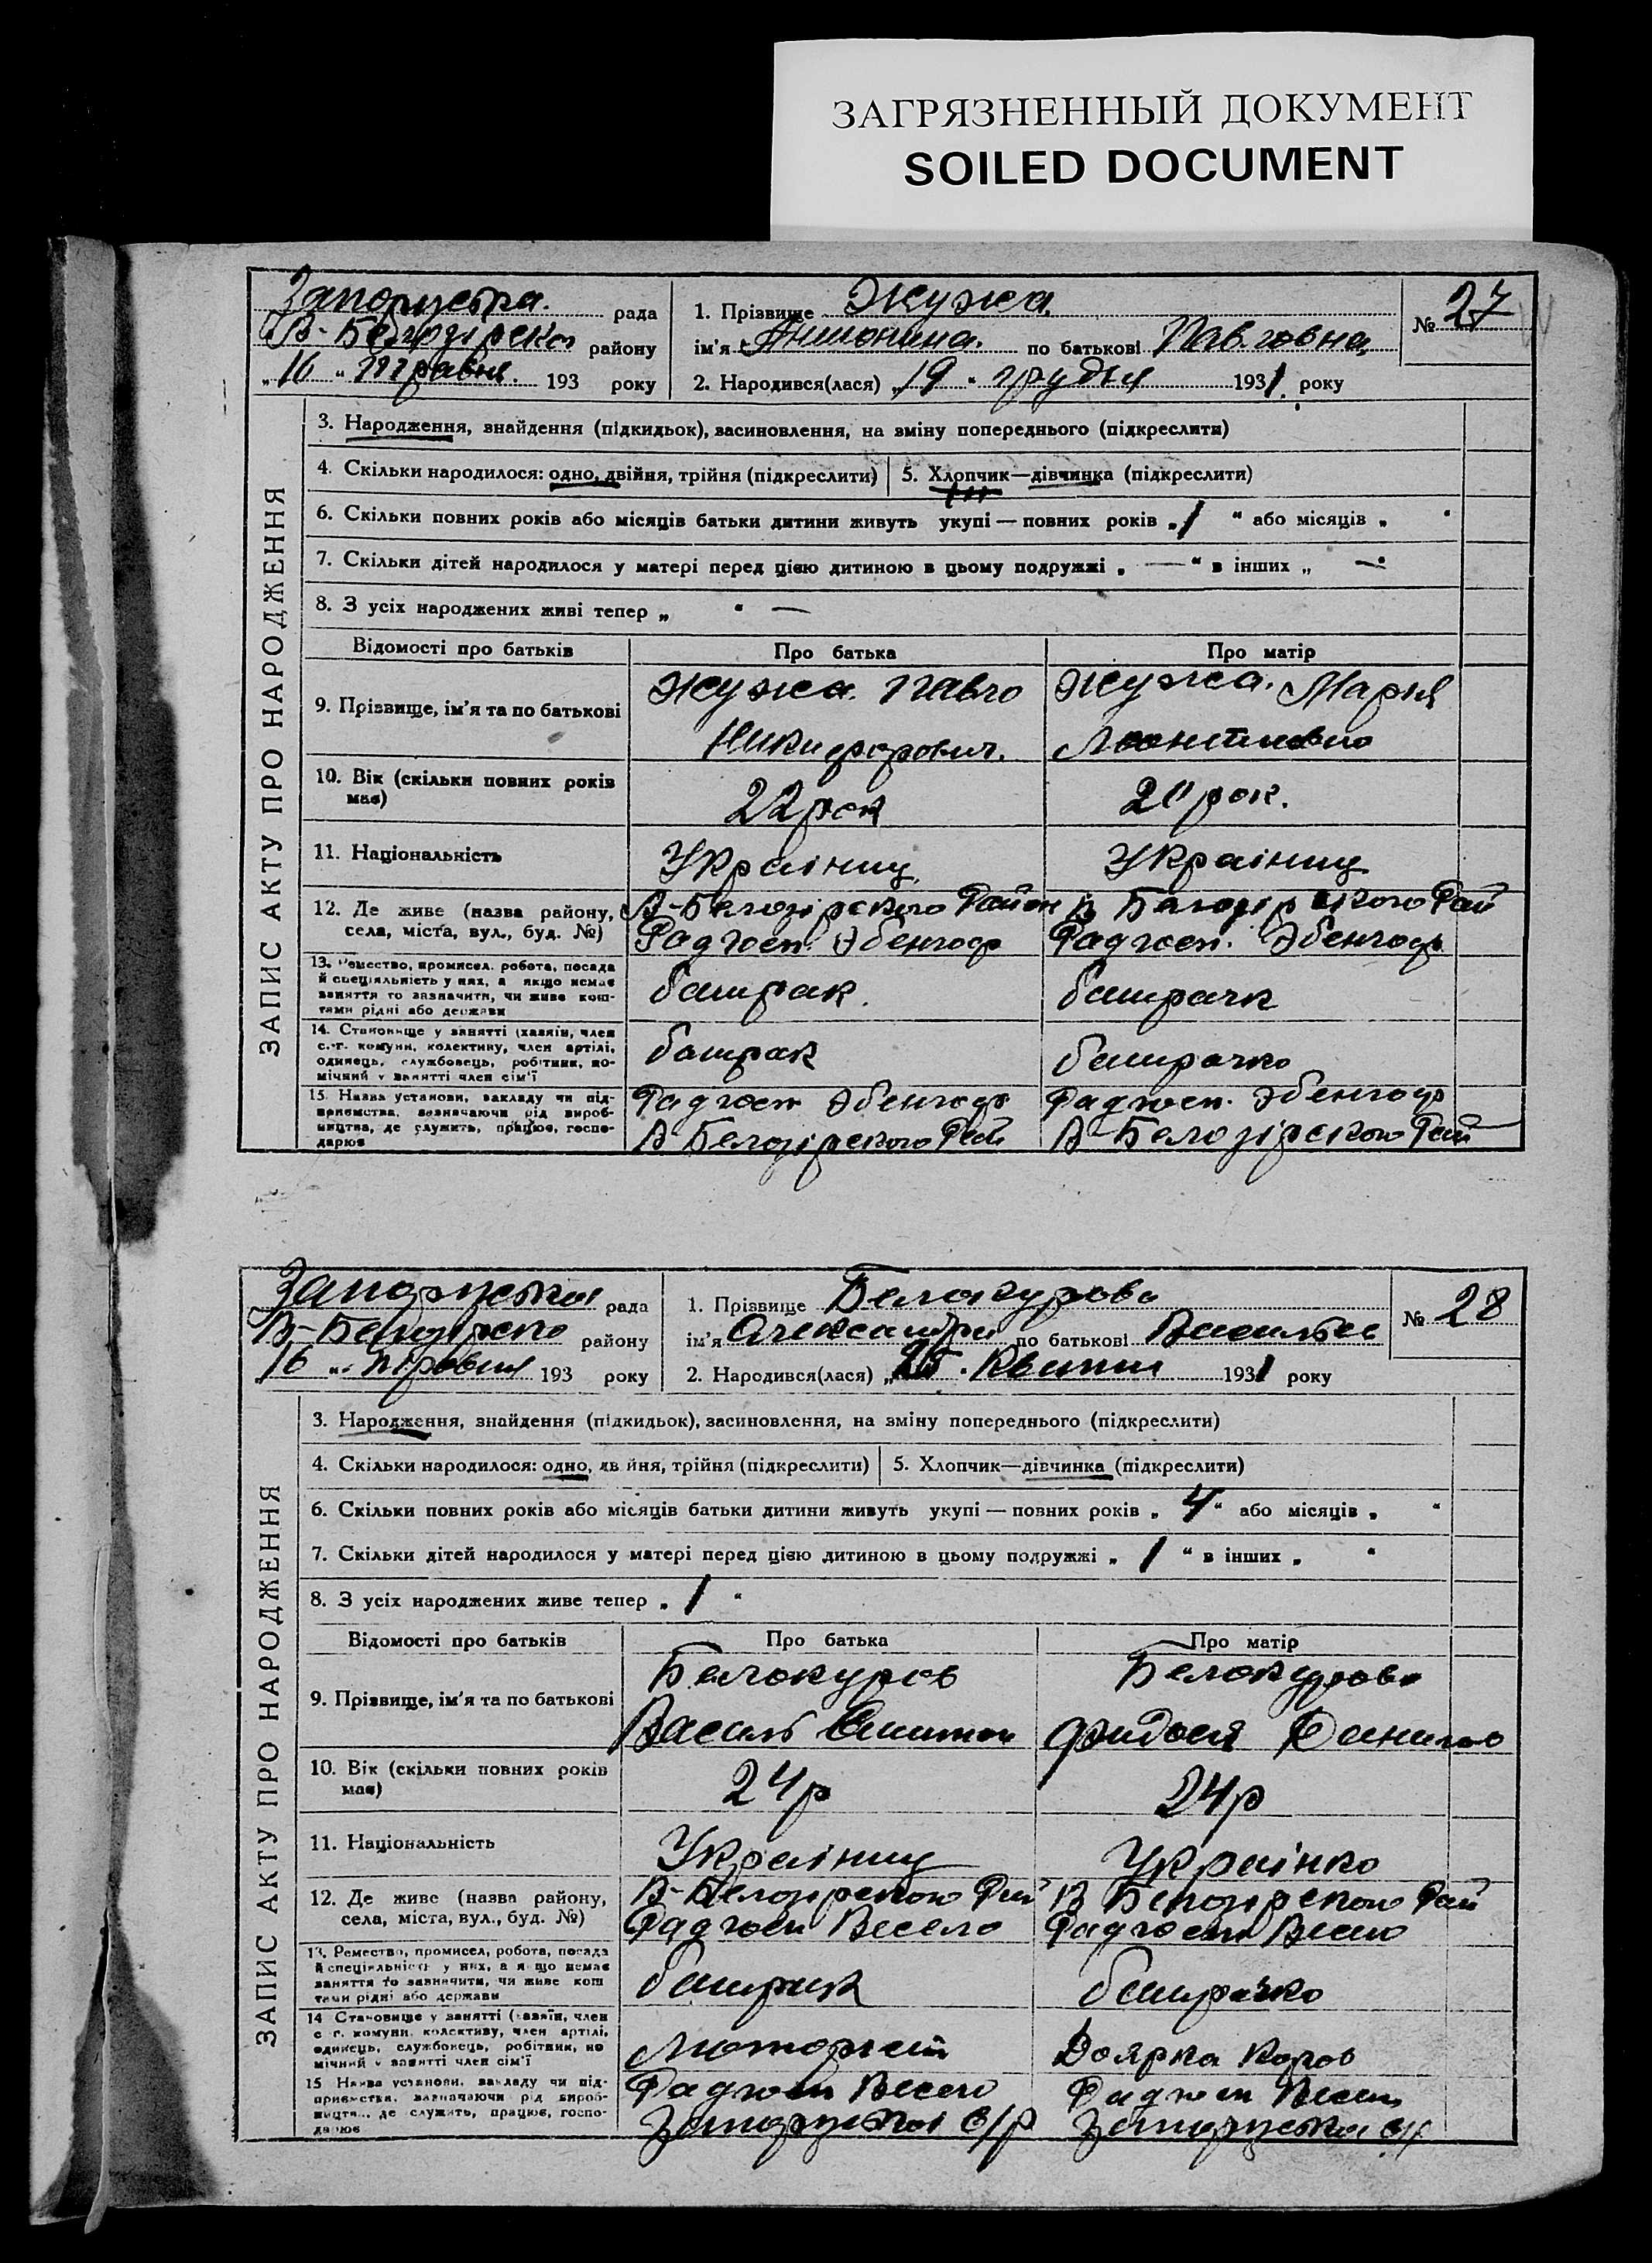 ЗАГРЯЗНЕННЫЙ ДОКУМЕНТ
SOILED DOCUMENT
рада
В-Белозірско району
„16“ Травня 193 року
1. Прізвище Жужа
ім'я Антонина по батькові Павловна
2. Народився(лася) „19“ грудня 1931 року
№ 27
ЗАПИС АКТУ ПРО НАРОДЖЕННЯ
3. Народження, знайдення (підкидьок), васиновлення, на зміну попереднього (підкреслити)
4. Скільки народилося: одно, двійня, трійня (підкреслити)
5. Хлопчик—дівчинка (підкреслити)
6. Скільки повних років або місяців батьки дитини живуть укупі — повних років „1“ або місяців „ “
7. Скільки дітей народилося у матері перед цією дитиною в цьому подружжі „—“ в інших „—“
8. З усіх народжених живі тепер „ “ —
Відомості про батьків
Про батька
Про матір
9. Прізвище, ім'я та по батькові
Жужа Павло
Никифорович.
Жужа. Мария
Леонтиевна
10. Вік (скільки повних років має)
22 рок
рок.
11. Національність
Українец
Українец
12. Де живе (назва району, села, міста, вул., буд. №)
В-Белозірского Район
Радгосп Эбенфор
В Белозірского Рай
Радгосп. Эбенфор
13. Ремество, промисел, робота, посада й спеціяльність у них, а якщо немає заняття то зазначити, чи живе коштами рідні або держави
батрак.
батрачк
14. Становище у занятті (хазяїн, член с.-г. комуни, колективу, член артілі, одинець, службовець, робітник, помічний у занятті член сім'ї
батрак
батрачко
15. Назва установи, закладу чи підприємства, зазначаючи рід виробництва, де служить, працює, господарює
Радгосп Эбенфор
В-Белозірского Рай
Радгосп. Эбенфор
В-Белозірского Рай
рада
району
„16“ Травня 193 року
1. Прізвище Белокурова
ім'я Александра по батькові Васильев
2. Народився(лася) „25“ Квітня 1931 року
№ 28
ЗАПИС АКТУ ПРО НАРОДЖЕННЯ
3. Народження, знайдення (підкидьок), засиновлення, на зміну попереднього (підкреслити)
4. Скільки народилося: одно, двійня, трійня (підкреслити)
5. Хлопчик—дівчинка (підкреслити)
6. Скільки повних років або місяців батьки дитини живуть укупі — повних років „4“ або місяців „ “
7. Скільки дітей народилося у матері перед цією дитиною в цьому подружжі „1“ в інших „ “
8. З усіх народжених живе тепер „1“
Відомості про батьків
Про батька
Про матір
9. Прізвище, ім'я та по батькові
Белокуров
Василь
Белокурова
Фидосія Данилов
10. Вік (скільки повних років має)
24р
24р
11. Національність
Українец
Українко
12. Де живе (назва району, села, міста, вул., буд. №)
В-Белозірского Рай
Радгосп Весело
В Белозірского Рай
Радгосп Весело
13. Ремество, промисел, робота, посада й спеціяльність у них, а якщо немає заняття то зазначити, чи живе коштами рідні або держави
батрак
батрачко
14 Становище у занятті (хазяїн, член с г. комуни, колективу, член артілі, одинець, службовець, робітник, помічний у занятті член сім'ї
Моторист
Доярка Коров
15 Назва установи, закладу чи підприємства, зазначаючи рід виробництва, де служить, працює, господарює
Радгосп Весело
с/р
Радгосп Весело
с/р